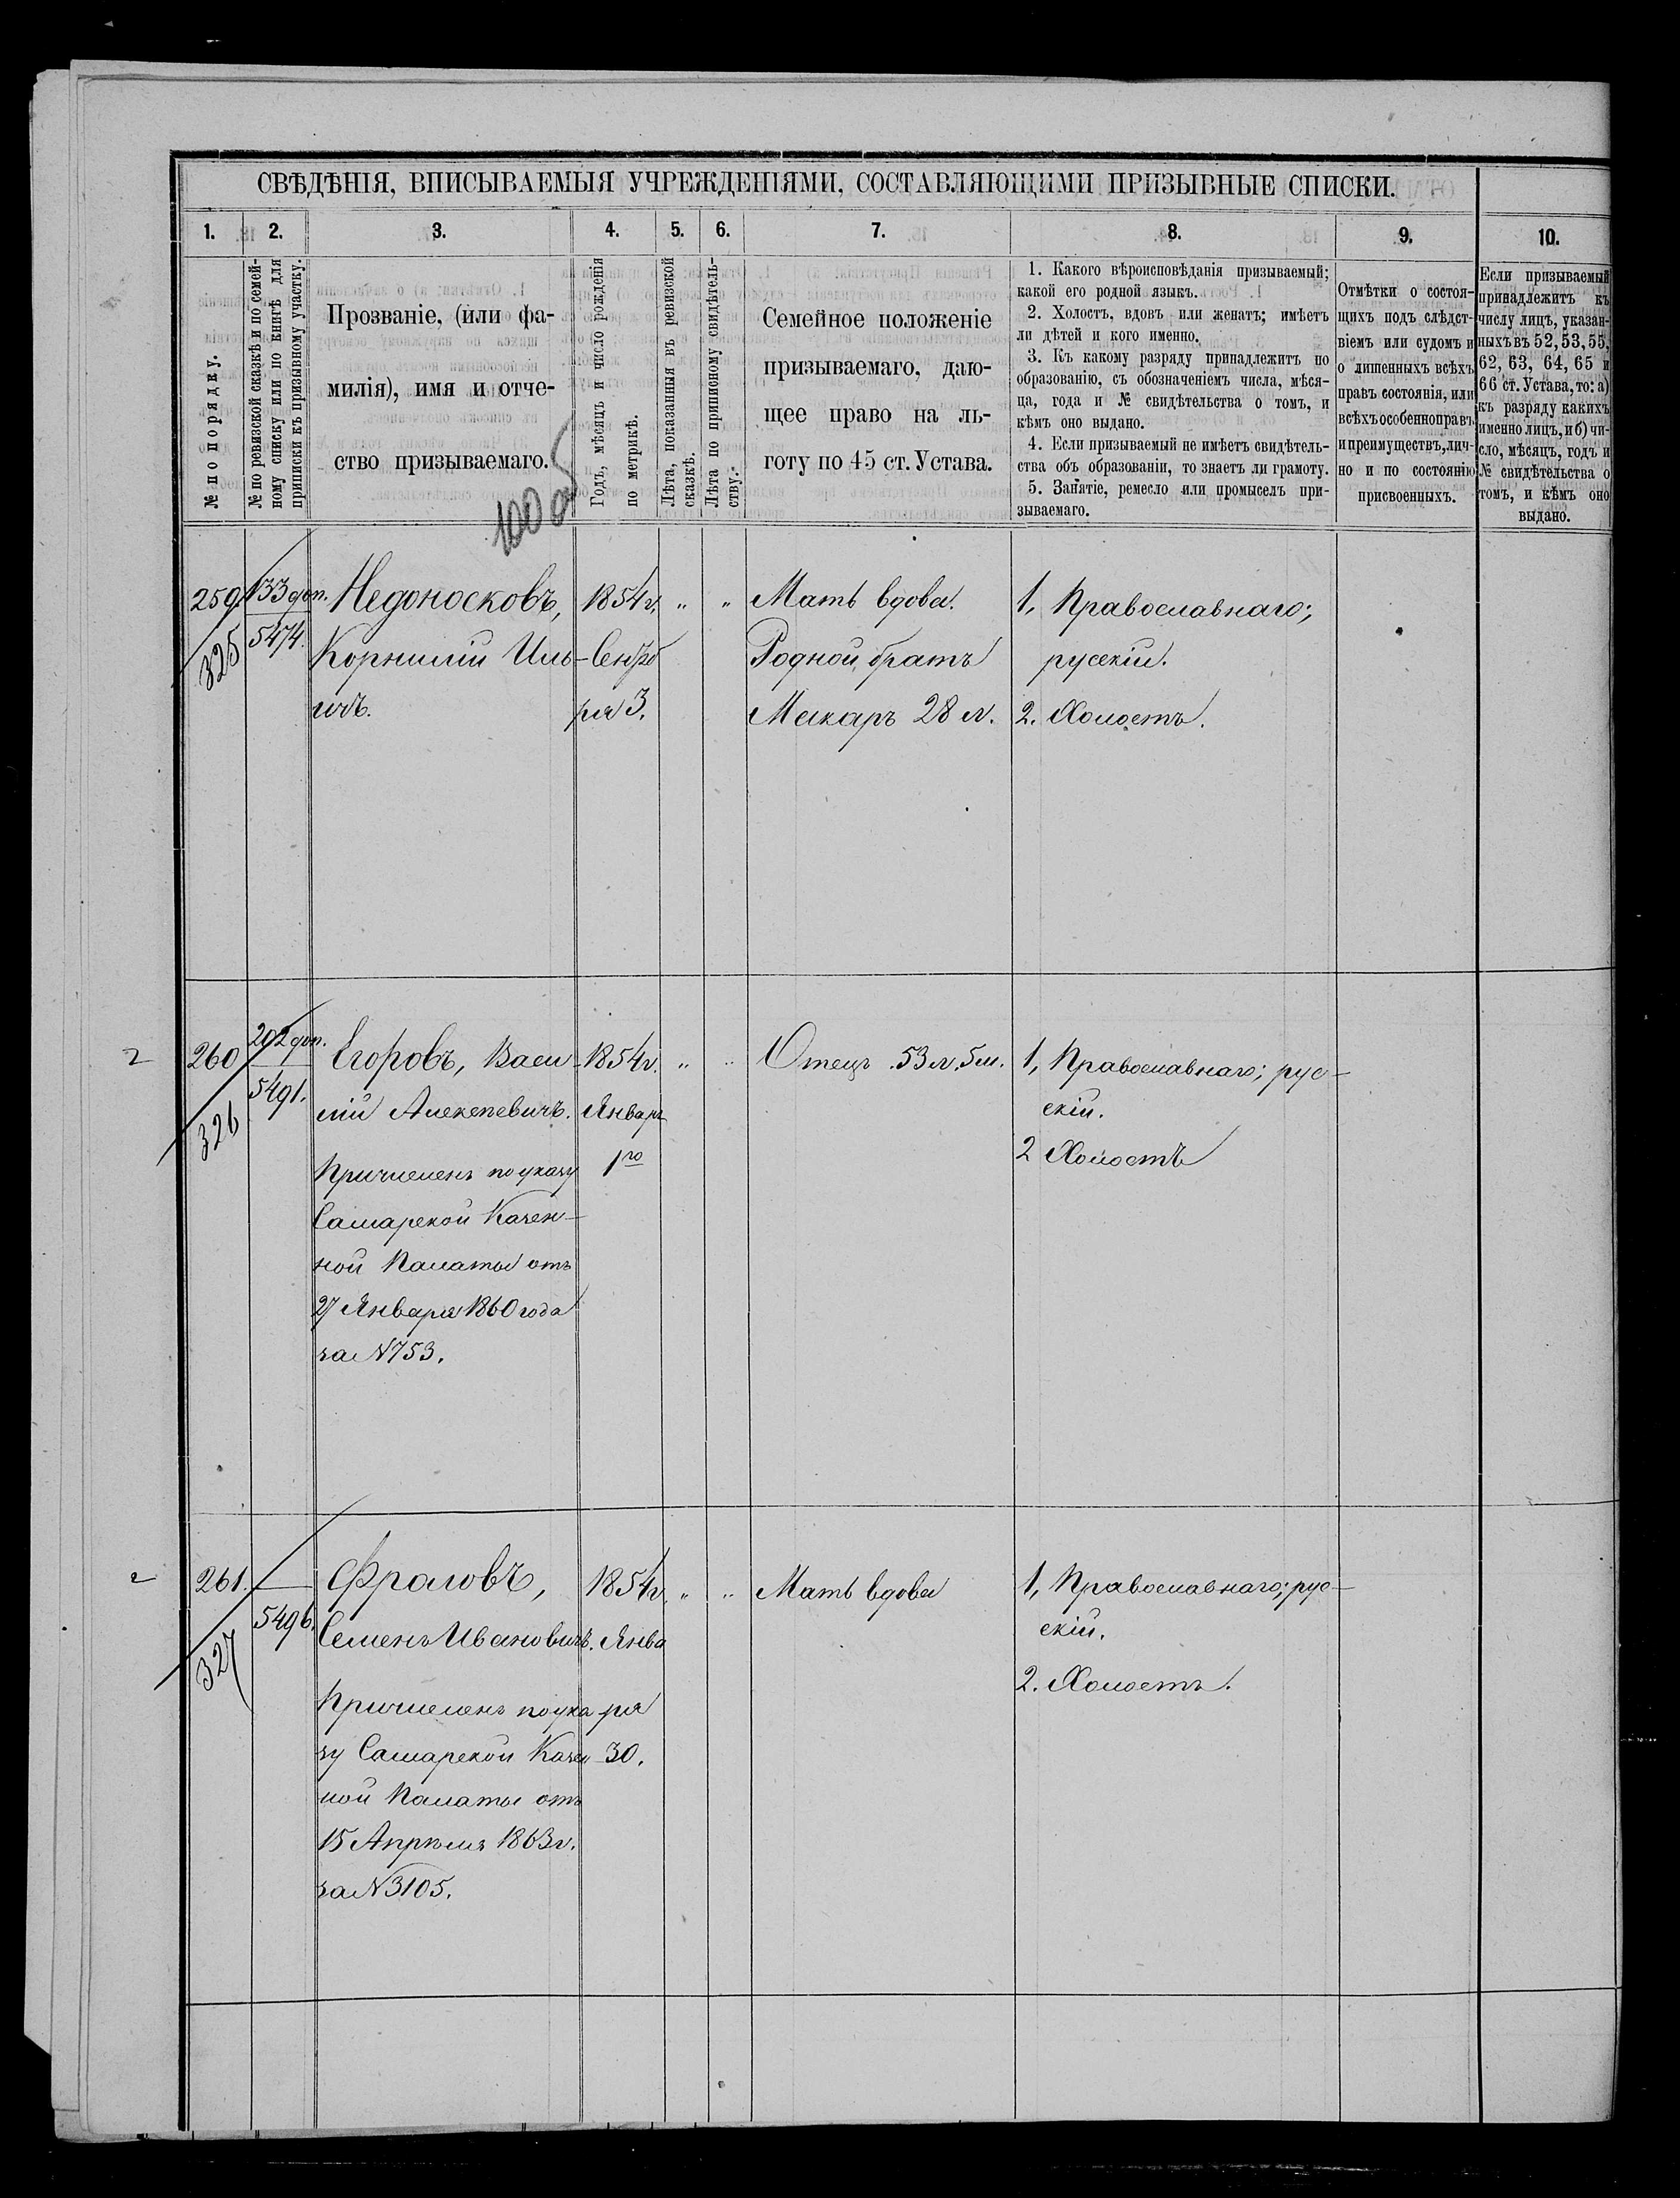 СВѢДѢНІЯ, ВПИСЫВАЕМЫЯ УЧРЕЖДЕНІЯМИ, СОСТАВЛЯЮЩИМИ ПРИЗЫВНЫЕ СПИСКИ.
1.
2.
3.
4.
5.
6.
7.
8.
9.
10.
№ по порядку.
№ по ревизской сказкѣ и по семей-
ному списку или по книгѣ для
приписки къ призывному участку.
Прозваніе, (или фа-
милія), имя и отче-
ство призываемаго.
Годъ, мѣсяцъ и число рожденія
по метрикѣ.
Лѣта, показанныя въ ревизской
сказкѣ.
Лѣта по приписному свидѣтель-
ству.
Семейное положеніе
призываемаго, даю-
щее право на ль-
готу по 45 ст. Устава.
1. Какого вѣроисповѣданія призываемый;
какой его родной языкъ.
2. Холостъ, вдовъ или женатъ; имѣетъ
ли дѣтей и кого именно.
3. Къ какому разряду принадлежитъ по
образованію, съ обозначеніемъ числа, мѣся-
ца, года и № свидѣтельства о томъ, и
кѣмъ оно выдано.
4. Если призываемый не имѣетъ свидѣтель-
ства объ образованіи, то знаетъ ли грамоту.
5. Занятіе, ремесло или промыселъ при-
зываемаго.
Отмѣтки о состоя-
щихъ подъ слѣдст-
віемъ или судомъ и
о лишенныхъ всѣхъ
правъ состоянія, или
всѣхъ особенно правъ
и преимуществъ, лич-
но и по состоянію
присвоенныхъ.
Если призываемый
принадлежитъ къ
числу лицъ, указан-
ныхъ въ 52, 53, 55,
62, 63, 64, 65 и
66 ст. Устава, то: а)
къ разряду какихъ
именно лицъ, и б) чи-
сло, мѣсяцъ, годъ и
№ свидѣтельства о
томъ, и кѣмъ оно
выдано.
259.
325
133 доп.
5474.
Недоносковъ,
Корнилій Иль-
ичъ.
1854 г.
Сентб
ря 3.
„
„
Мать вдова.
Родной братъ
Макаръ 28 л.
1, Православнаго;
русскій.
2. Холостъ.
2
260
326
202 доп.
5491.
Егоровъ, Васи-
лій Алексѣевичъ.
Причисленъ по указу
Самарской Казен-
ной Палаты отъ
27 Января 1860 года
за N 753.
1854 г.
Январь
1го
„
„
Отецъ 53 л. 5 м.
1, Православнаго; рус-
скій.
2 Холостъ
2
261.
327
5496.
Фроловъ,
Семенъ Ивановичъ.
Причисленъ по ука
зу Самарской Казен
ной Палаты отъ
15 Апрѣля 1863 г.
за N 3105.
1854 г.
Янва
ря
30.
„
„
Мать вдова
1, Православнаго; рус-
скій.
2. Холостъ.